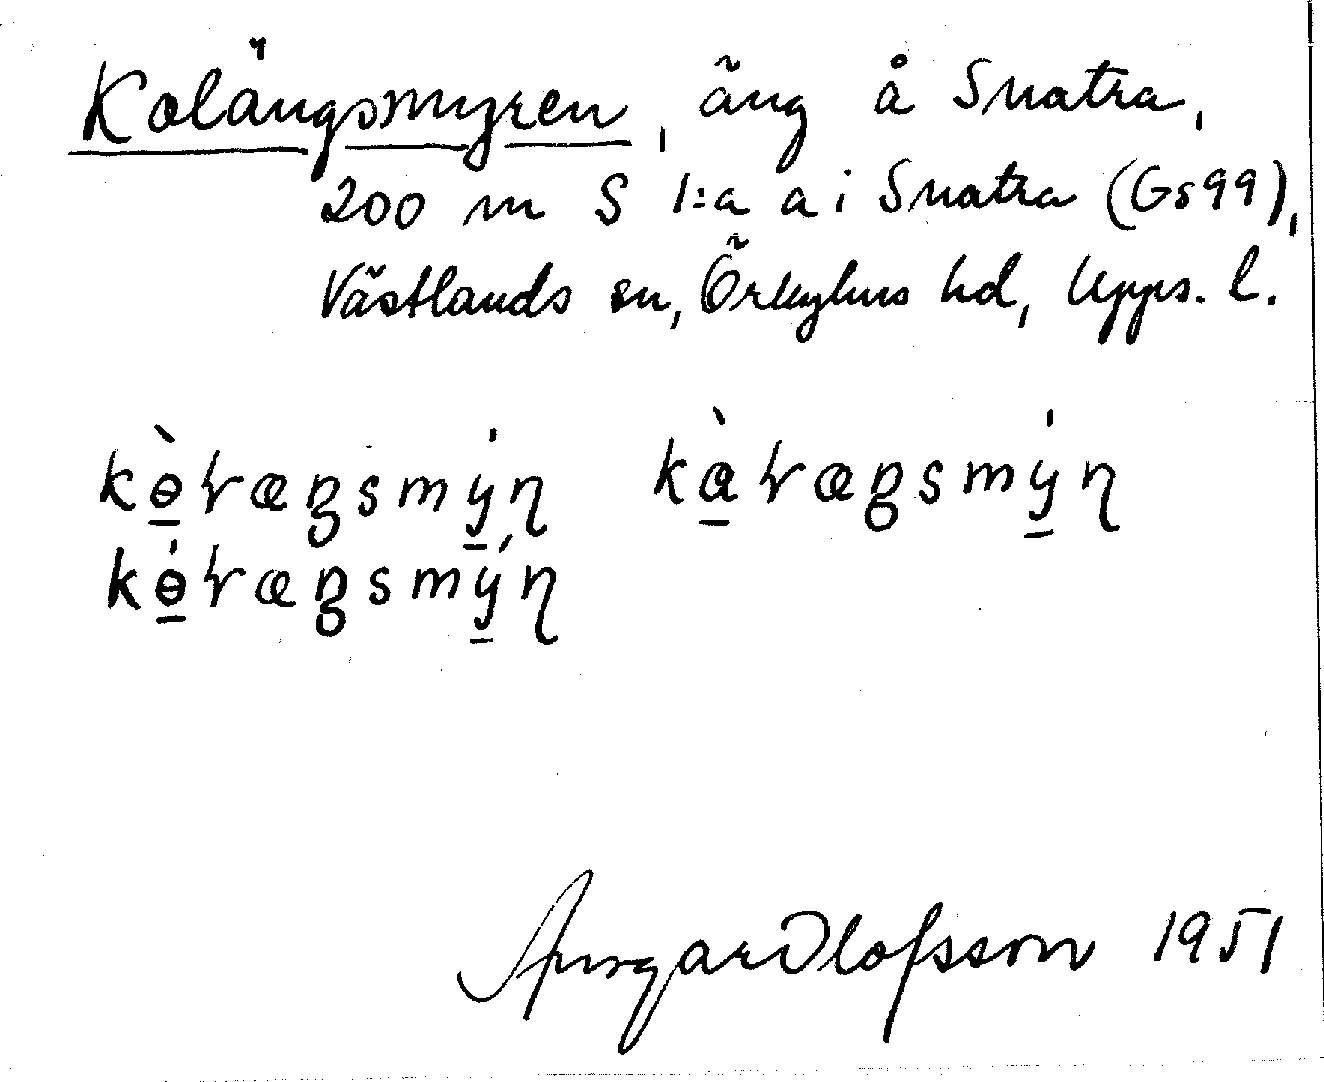 Kolängsmyren, äng å Snatra,
200 m S 1:a a i Snatra (Gs 99),
Västlands sn, Örbyhus hd, Upps. l.
kɵ̀ɽæŋsmýɳ kàɽæŋsmýɳ
kɵ́ɽæŋsmýɳ
Ansgar Olofsson 1951